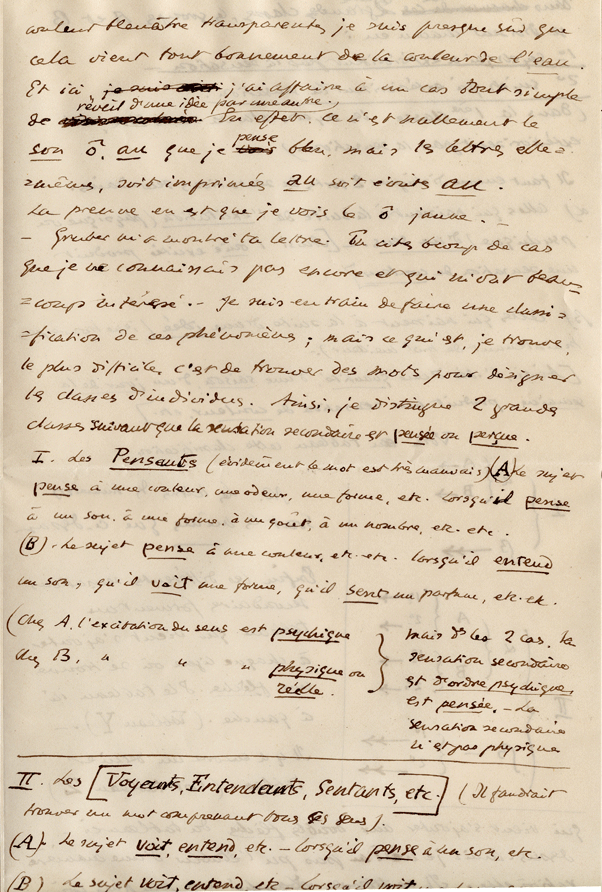 couleur bleuâtre transparente, je suis presque sûr que
cela vient tout bonnement de la couleur de l'eau.
Et ici j'ai affaire à un cas tout simple
réveil d'une idée par une autre.,
de En effet, ce n'est nullement le
pense
son ô, au que je bleu, mais les lettres elle=
=mêmes, soit imprimés au soit écrits au.
La preuve en est que je vois le ô jaune. –
– Gruber m'a montré ta lettre. Tu cites bcoup de cas
que je ne connaissais pas encore et qui m'ont beau=
=coup intéressé. – Je suis en train de faire une classi=
=fication de ces phénomènes ; mais ce qui est, je trouve,
le plus difficile, c'est de trouver des mots pour désigner
les classes d'individus. Ainsi, je distingue 2 grandes
classes suivant que la sensation secondaire est pensée ou perçue.
I. Les Pensants (évidemment le mot est très mauvais) (A) Le sujet
pense à une couleur, une odeur, une forme, etc. lorsqu'il pense
à un son, à une forme, à un goût, à un nombre, etc. etc.
(B) – Le sujet pense à une couleur, etc. etc. lorsqu'il entend
un son, qu'il voit une forme, qu'il sent un parfum, etc. etc.
(chez A, l'excitation du sens est psychique
chez B, " " " physique ou
réelle.
mais ds les 2 cas, la
sensation secondaire
est d'ordre psychique,
est pensée. – La
sensation secondaire
n'est pas physique
II. Les [Voyants, Entendants, Sentants, etc.] (Il faudrait
trouver un mot comprenant tous ces sens).
(A). Le sujet voit, entend, etc. – lorsqu'il pense à un son, etc.
(B) Le sujet voit, entend, etc – lorsqu'il voit